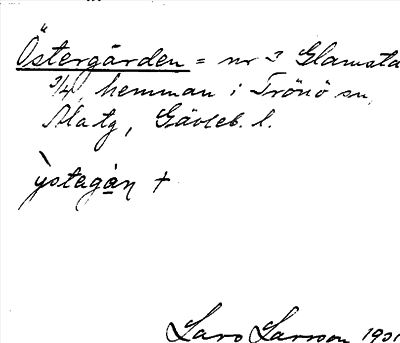 Östergården = nr 3 Glamsta
3/4 hemman i Trönö sn,
Alatg, Gävleb. l.
ỳstegàn +
Lars Larsson 1901